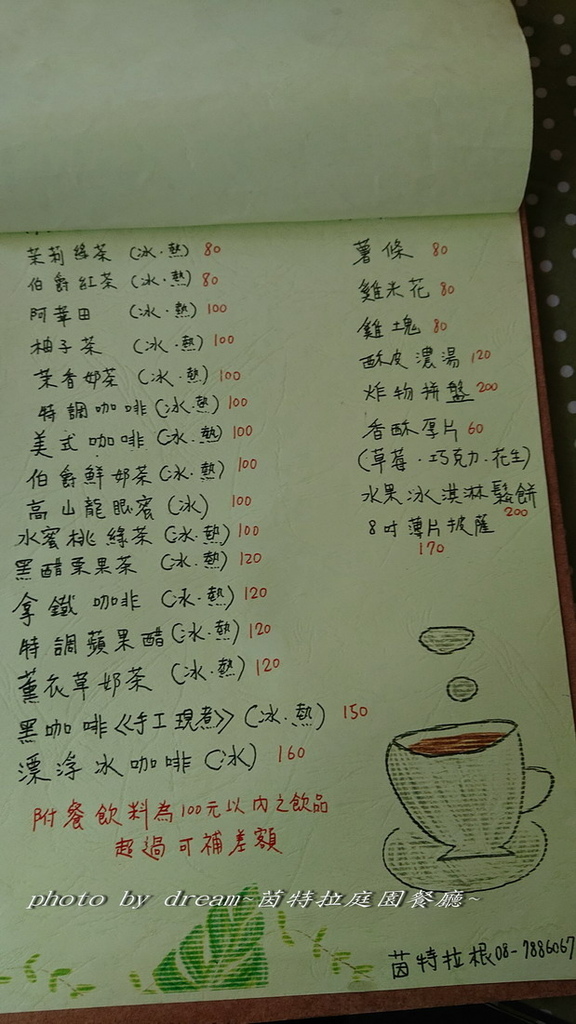 茉莉綠茶 (冰·熱) 80
伯爵紅茶 (冰·熱) 80
阿華田 (冰·熱) 100
柚子茶 (冰·熱) 100
茉香奶茶 (冰·熱) 100
特調咖啡 (冰·熱) 100
美式咖啡 (冰·熱) 100
伯爵鮮奶茶 (冰·熱) 100
高山龍眼蜜 (冰) 100
水蜜桃綠茶 (冰·熱) 100
黑醋栗果茶 (冰·熱) 120
拿鐵咖啡 (冰·熱) 120
特調蘋果醋 (冰·熱) 120
薰衣草奶茶 (冰·熱) 120
黑咖啡《手工現煮》 (冰·熱) 150
漂浮冰咖啡 (冰) 160
附餐飲料為100元以內之飲品
超過可補差額
薯條 80
雞米花 80
雞塊 80
酥皮濃湯 120
炸物拼盤 200
香酥厚片 60
(草莓·巧克力·花生)
水果冰淇淋鬆餅
200
8吋薄片披薩
170
photo by dream~茵特拉庭園餐廳~
茵特拉根 08-7886067